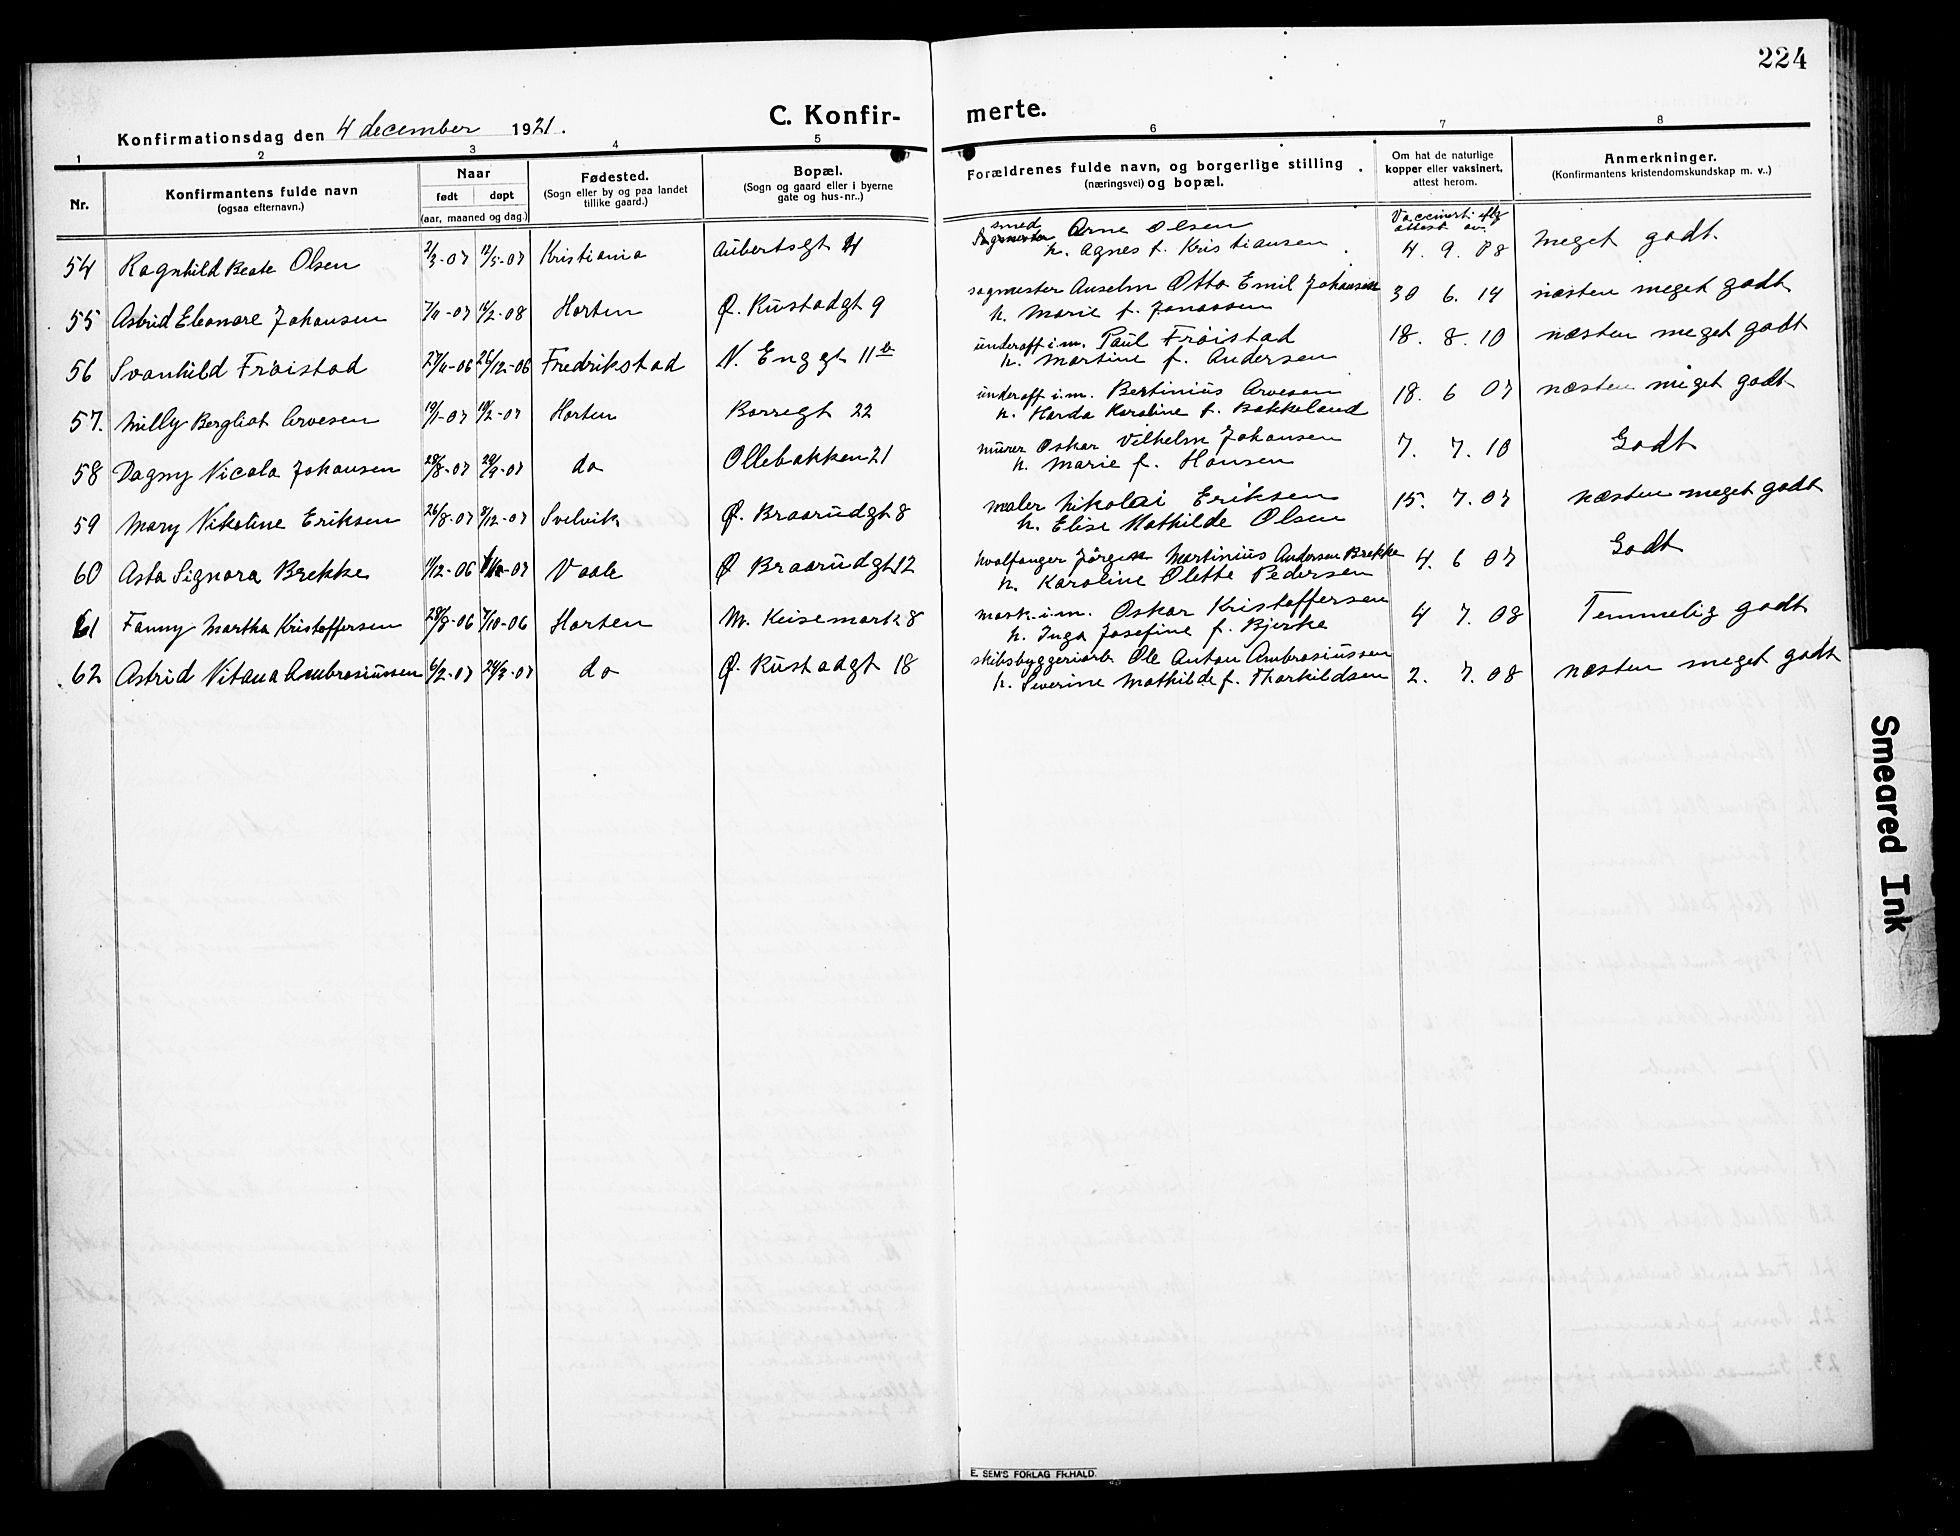 224
Konfirmationsdag den 4 december 1921.
C. Konfir- merte.
1 2 3 4 5 6 7 8
Nr.
Konfirmantens fulde navn
(ogsaa efternavn.)
Naar
født døpt
(aar, maaned og dag.)
Fødested.
(Sogn eller by og paa landet
tillike gaard.)
Bopæl.
(Sogn og gaard eller i byerne
gate og hus-nr..)
Forældrenes fulde navn, og borgerlige stilling
(næringsvei) og bopæl.
Om hat de naturlige
kopper eller vaksinert,
attest herom.
Anmerkninger.
(Konfirmantens kristendomskundskap m. v..)
Vaccinert iflg
attest av
smed Arne Olsen
54 Ragnhild Beate Olsen 2/3-07 12/5-07 Kristiania Aubertsgt 4 h. Agnes f. Kristiansen 4. 9. 08 meget godt.
sagmester Anselm Otto Emil Johansen
55 Astrid Eleonore Johansen 7/11-07 16/2-08 Horten Ø. Rustadgt 9 h. Marie f. Jonassen 30 6. 14 næsten meget godt
underoff i.m. Paul Frøistad
56 Svanhild Frøistad 27/11-06 26/12-06 Fredrikstad N. Enggt 11b h. Martine f. Andersen 18. 8. 10 næsten meget godt
underoff i.m. Bertinius Arvesen
57. Milly Bergliot Arvesen 19/1-07 10/2-07 Horten Borregt 22 h. Harda Karoline f. Bakkeland 18. 6 07 næsten meget godt
murer Oskar Vilhelm Johansen
58 Dagny Nicola Johansen 28/8-07 29/9-07 do Ollebakken 21 h. Marie f. Hansen 7. 7. 10 Godt
maler Nikolai Eriksen
59 Mary Nikoline Eriksen 26/8-07 8/12-07 Svelvik Ø. Braarudgt 8 h. Elise Mathilde Olsen 15. 7. 07 næsten meget godt
hvalfanger Jørgen Martinius Andersen Brekke
60 Asta Signora Brekke 11/12-06 Vaale Ø Braarudgt 12 h. Karoline Olette Pedersen 4. 6 07 Godt
mask.i.m. Oskar Kristoffersen
61 Fanny Martha Kristoffersen 28/8-06 7/10-06 Horten M. Keisemark 8 h. Inga Josefine f. Bjerke 4 7. 08 Temmelig godt
skibsbyggeriarb Ole Anton Ambrosiussen
62 Astrid Vitana Ambrosiussen 6/2-07 24/3-07 do Ø. Rustadgt 18 h. Severine Mathilde f. Thorkildsen 2. 7. 08 næsten meget godt
E. SEM'S FORLAG FR.HALD.
Smeared Ink